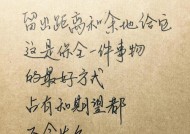 留出距离和余地给它
这是保全一件事物
的最好方式
占有和期望都